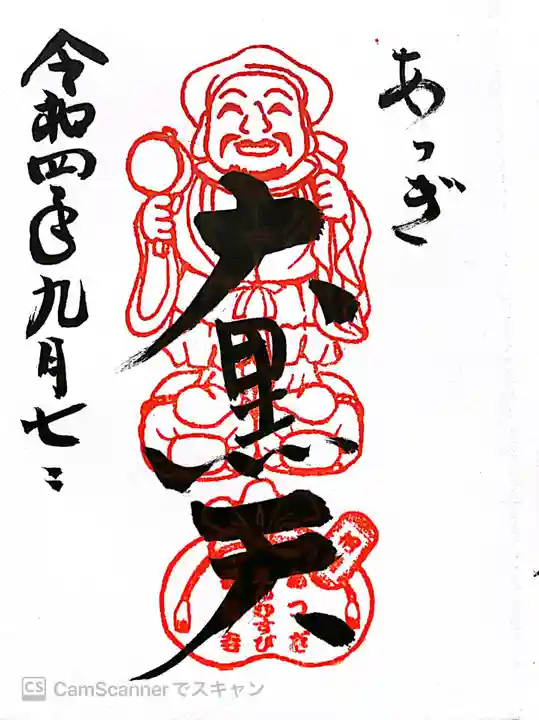 あつぎ
大黒天
令和四年九月七日
むすび
CS CamScannerでスキャン